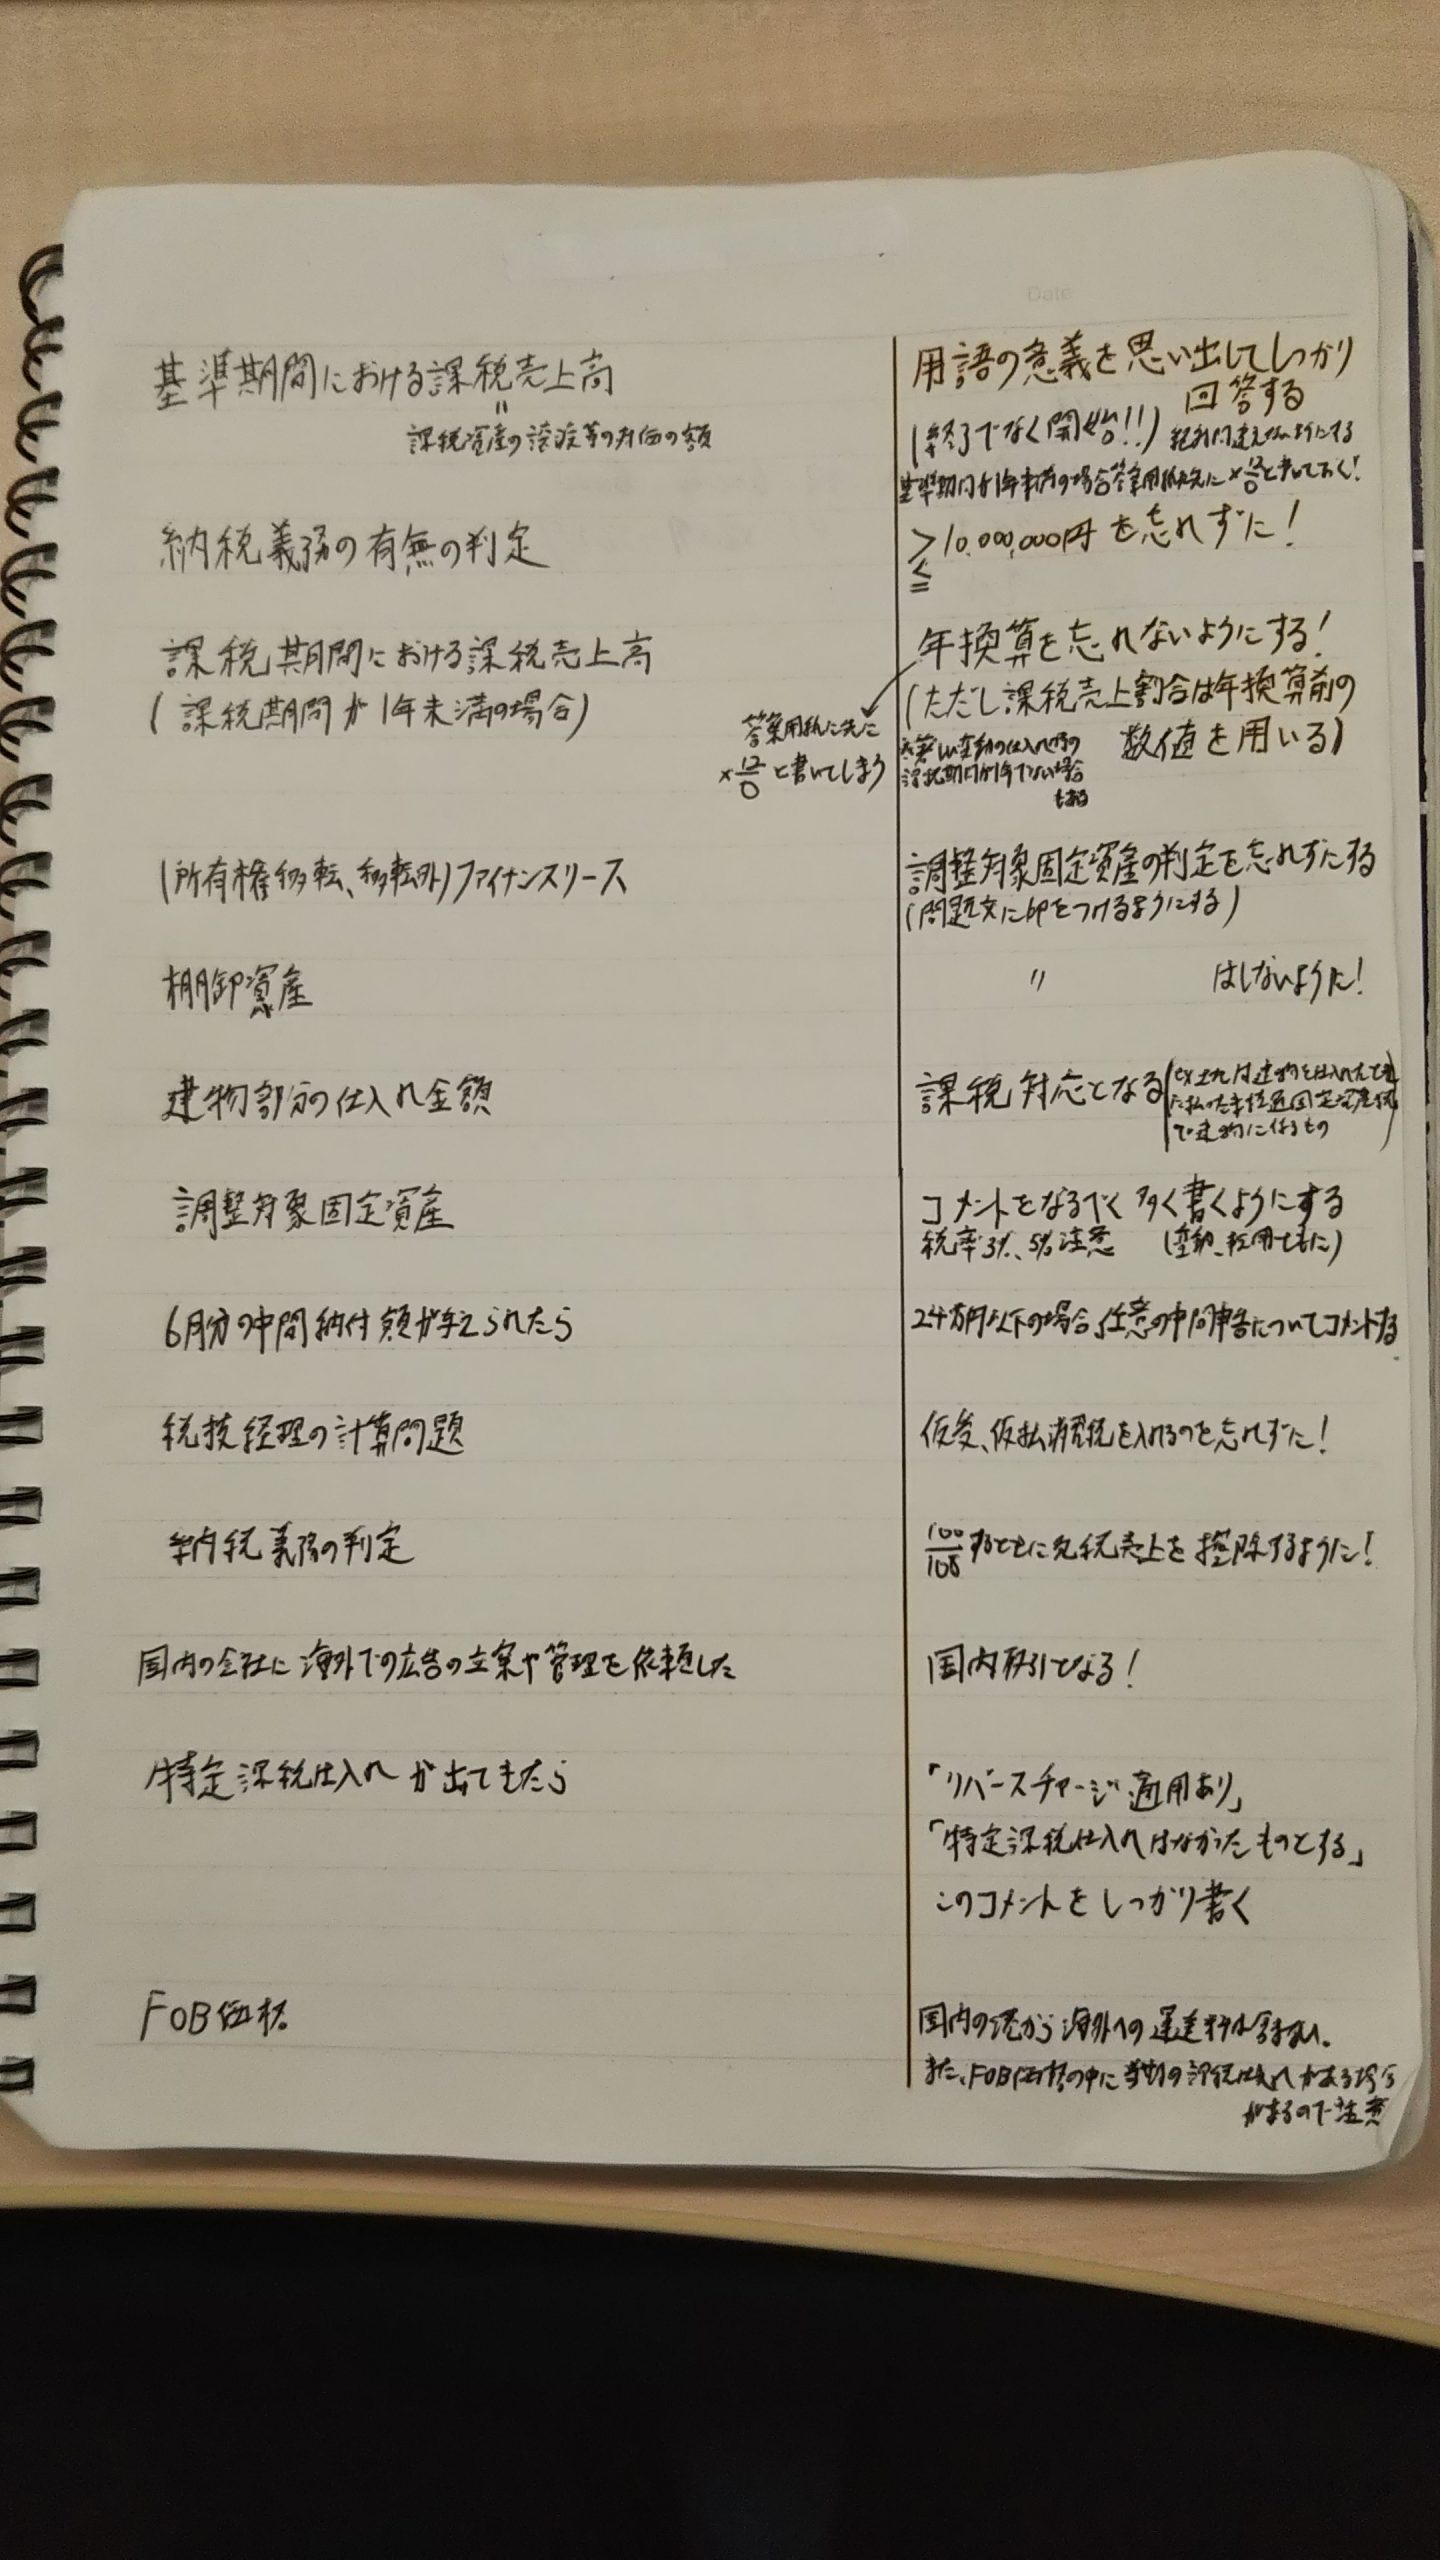 Date
基準期間における課税売上高
〃
課税資産の譲渡等の対価の額
用語の意義を思い出してしっかり
回答する
(終了でなく開始!!)
絶対間違えないようにする
基準期間が1年未満の場合答案用紙に先に×12/○と書いておく!
納税義務の有無の判定
>10,000,000円を忘れずに!
≦
課税期間における課税売上高
(課税期間が1年未満の場合)
年換算を忘れないようにする!
(ただし課税売上割合は年換算前の
数値を用いる)
答案用紙に先に
×12/○と書いてしまう
著しい変動の仕入れ等の
課税期間が1年でない場合
もある
(所有権移転、移転外)ファイナンスリース
調整対象固定資産の判定を忘れずにする
(問題文に印をつけるようにする)
棚卸資産
〃 はしないように!
建物部分の仕入れ金額
課税対応となる
(ex土地付建物を仕入れたとき
に払った未経過固定資産税
で建物に係るもの
調整対象固定資産
コメントをなるべく多く書くようにする
税率3%、5%注意 (変動、転用ともに)
6月分の中間納付額が与えられたら
24万円以下の場合、任意の中間申告についてコメントする
税抜経理の計算問題
仮受、仮払消費税を入れるのを忘れずに!
納税義務の判定
100/108するとともに免税売上を控除するように!
国内の会社に海外での広告の立案や管理を依頼した
国内取引となる!
特定課税仕入れが出てきたら
「リバースチャージ適用あり」
「特定課税仕入れはなかったものとする」
このコメントをしっかり書く
FOB価格
国内の港から海外への運送料は含まない。
また、FOB価格の中に 課税仕入れがある場合
があるので注意